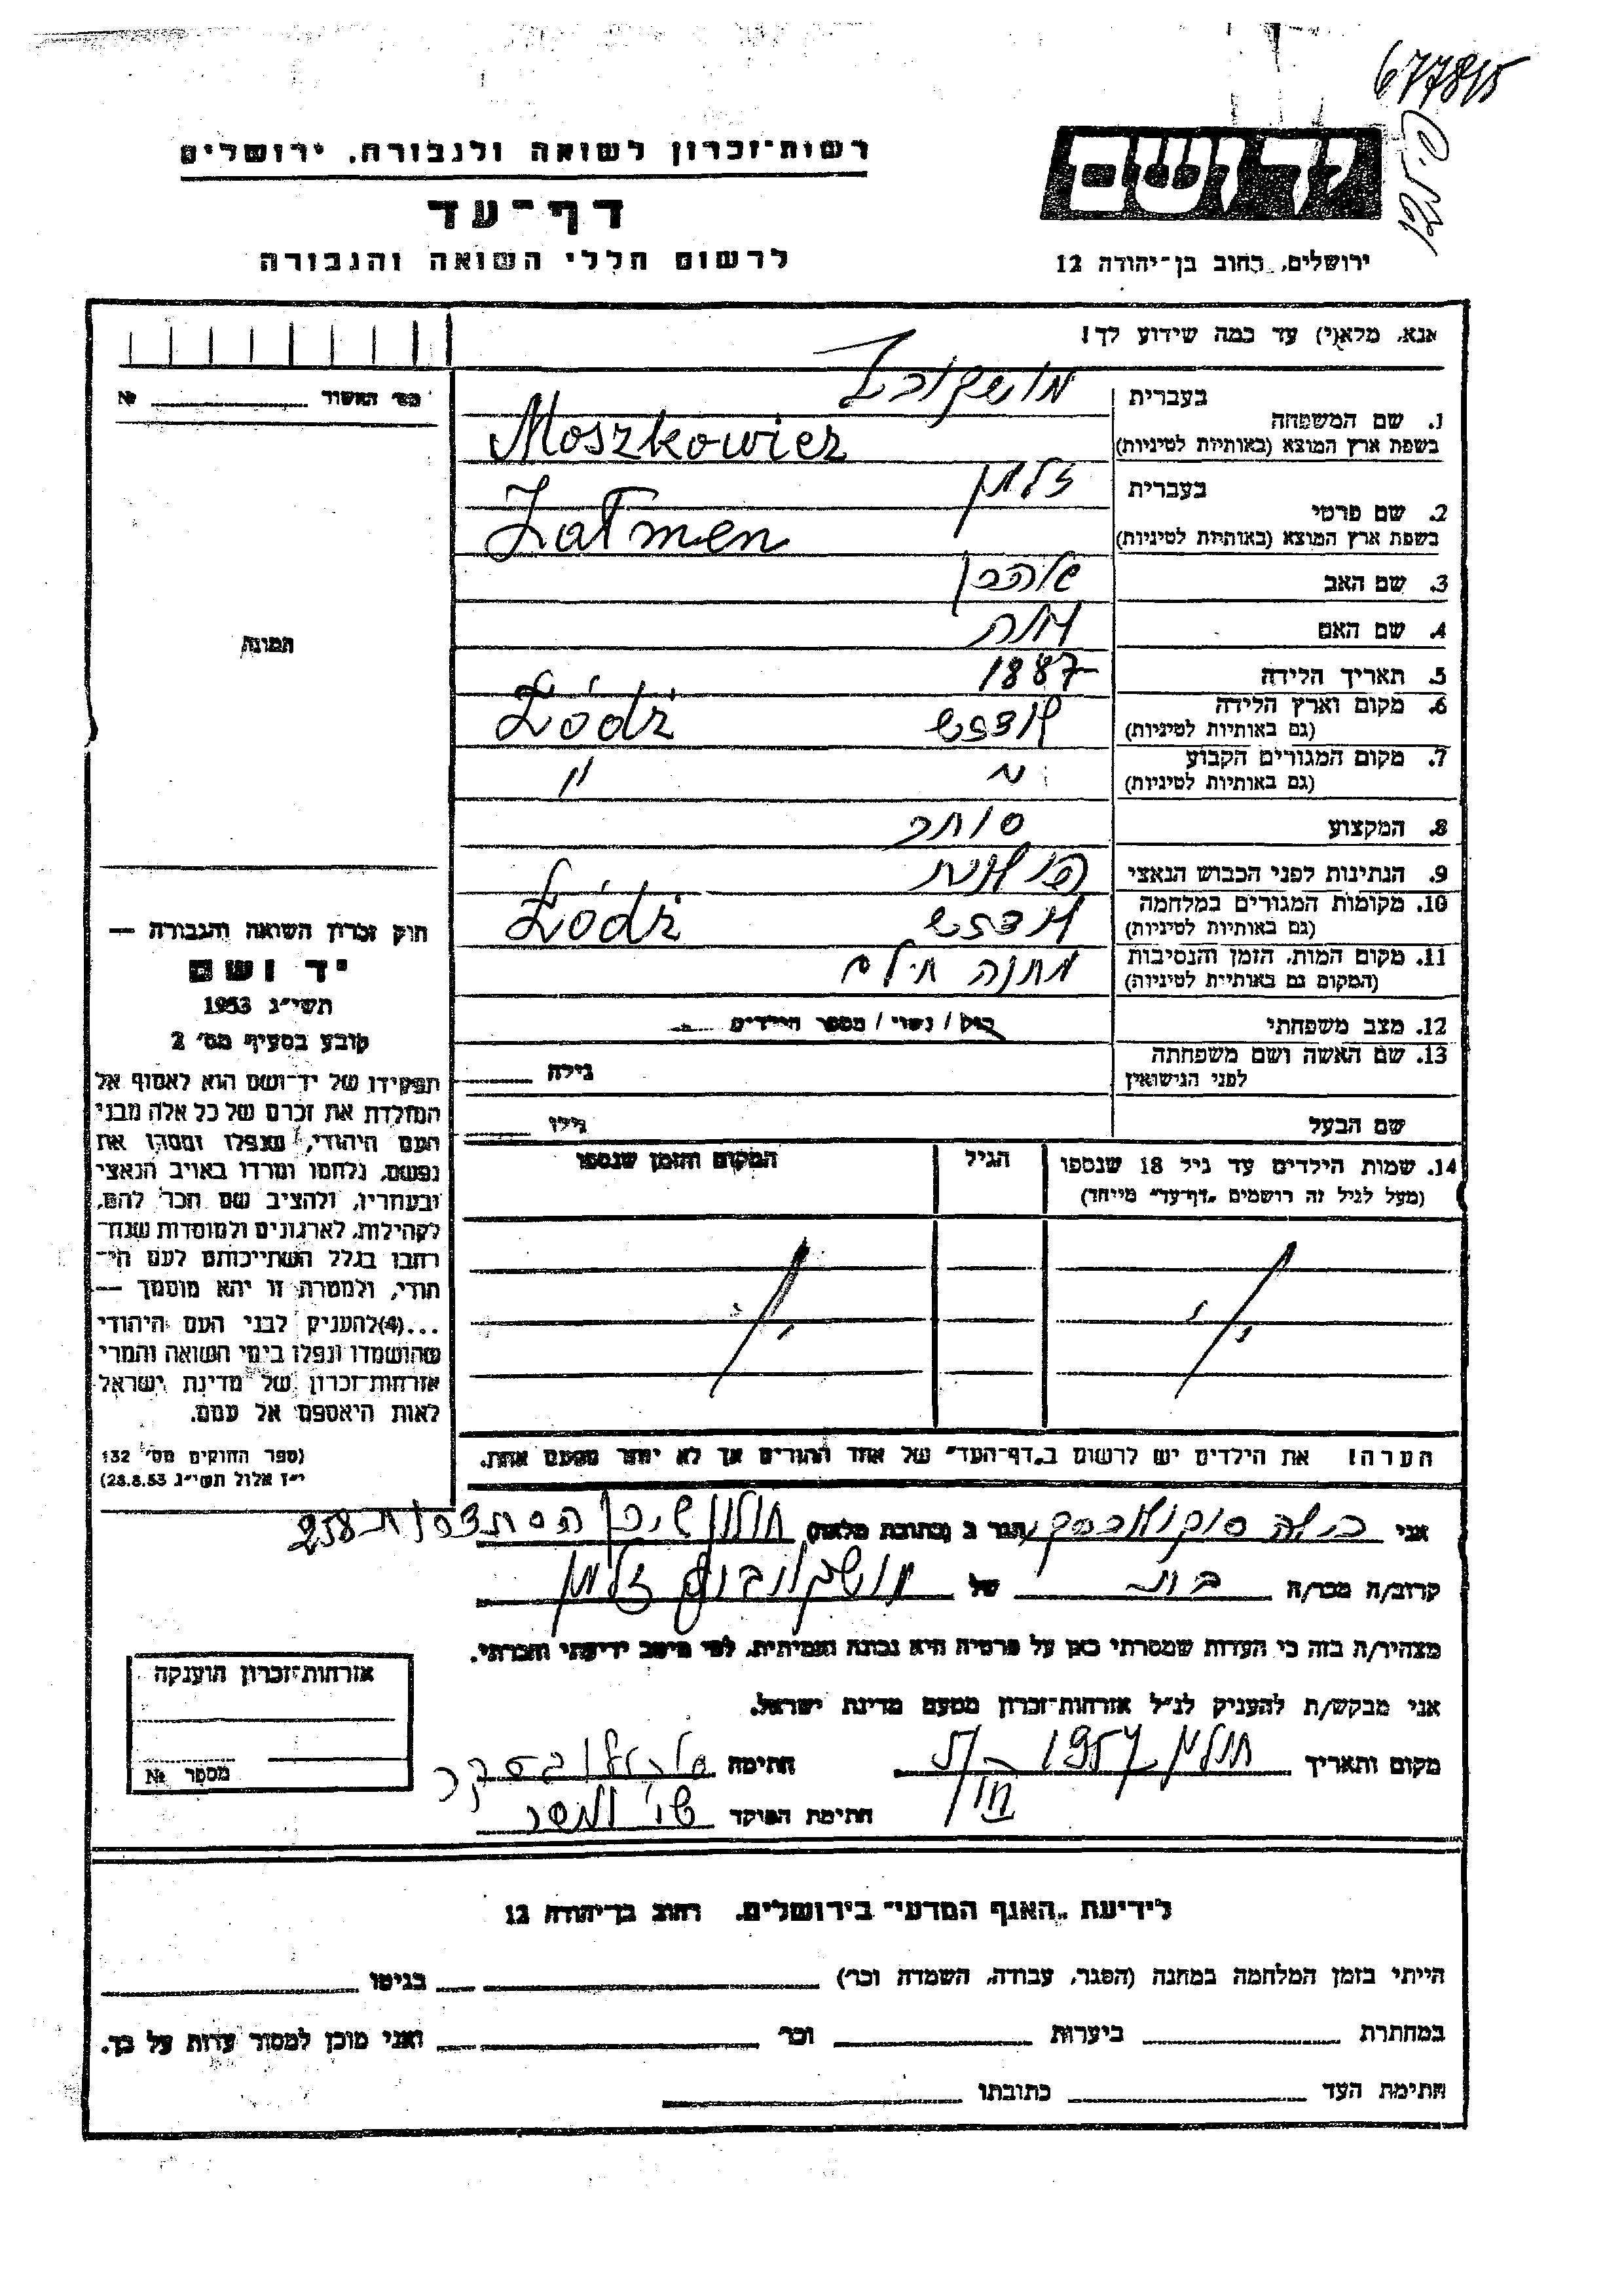 677815
רשות־זכרון לשואה ולגבורה, ירושלים
יד ושם
דף־עד
לרשום חללי השואה והגבורה
ירושלים, רחוב בן־יהודה 12
אנא, מלא(י) עד כמה שידוע לך!
מס' האשור № 
בעברית
1. שם המשפחה
Moszkowicz
בשפת ארץ המוצא (באותיות לטיניות)
בעברית זלמן
2. שם פרטי
Załmen
בשפת ארץ המוצא (באותיות לטיניות)
3. שם האב
4. שם האם
5. תאריך הלידה 1887
6. מקום וארץ הלידה לודז' Łódź
(גם באותיות לטיניות)
7. מקום המגורים הקבוע
(גם באותיות לטיניות)
8. המקצוע סוחר
9. הנתינות לפני הכבוש הנאצי פולנית
10. מקומות המגורים במלחמה Łódź
(גם באותיות לטיניות)
11. מקום המות, הזמן והנסיבות מחנה
(המקום גם באותיות לטיניות)
12. מצב משפחתי רווק / נשוי / מספר הילדים
13. שם האשה ושם משפחתה גילה
לפני הנישואין
שם הבעל גילו
14. שמות הילדים עד גיל 18 שנספו הגיל המקום והזמן שנספו
(מעל לגיל זה רושמים „דף־עד" מיוחד)
הערה! את הילדים יש לרשום ב„דף־העד" של אחד ההורים אך לא יותר מפעם אחת.
תמונה
חוק זכרון השואה והגבורה —
יד ושם
תשי"ג 1953
קובע בסעיף מס' 2
תפקידו של יד־ושם הוא לאסוף אל
המולדת את זכרם של כל אלה מבני
העם היהודי, שנפלו ומסרו את
נפשם, נלחמו ומרדו באויב הנאצי
ובעוזריו, ולהציב שם וזכר להם,
לקהילות, לארגונים ולמוסדות שנח־
רבו בגלל השתייכותם לעם הי־
הודי, ולמטרה זו יהא מוסמך —
...(4)להעניק לבני העם היהודי
שהושמדו ונפלו בימי השואה והמרי
אזרחות־זכרון של מדינת ישראל
לאות היאספם אל עמם.
(ספר החוקים מס' 132
י"ז אלול תשי"ג 28.8.53)
אני הגר ב (כתובת מלאה) חולון שיכון 258
קרוב/ה מכר/ה בת של מושקוביץ זלמן
מצהיר/ה בזה כי העדות שמסרתי כאן על פרטיה היא נכונה ואמיתית, לפי מיטב ידיעתי והכרתי.
אני מבקש/ת להעניק לנ"ל אזרחות־זכרון מטעם מדינת ישראל.
מקום ותאריך חולון 1957 חתימה
חתימת הפוקד
אזרחות־זכרון הוענקה
מספר №
לידיעת „האגף המדעי" בירושלים, רחוב בן־יהודה 12
הייתי בזמן המלחמה במחנה (הסגר, עבודה, השמדה וכו') בגיטו
במחתרת ביערות וכו' ואני מוכן למסור עדות על כך.
חתימת העד כתובתו